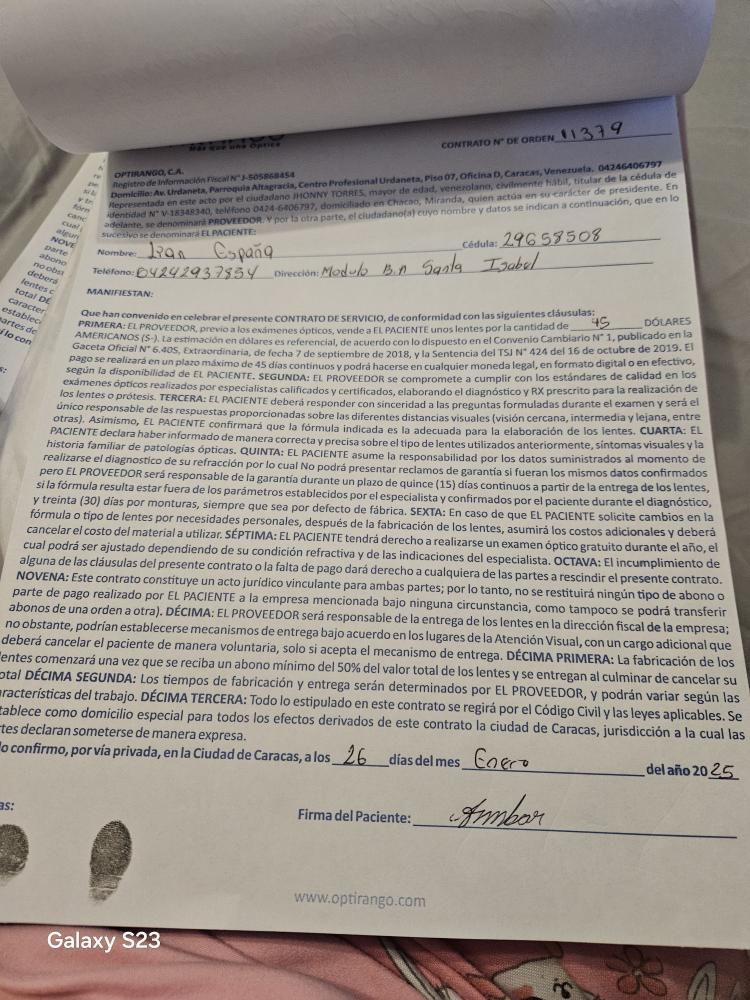 Más que una Óptica
CONTRATO N° DE ORDEN 11379
OPTIRANGO, C.A.
Registro de Información Fiscal N° J-505868454
Domicilio: Av. Urdaneta, Parroquia Altagracia, Centro Profesional Urdaneta, Piso 07, Oficina D, Caracas, Venezuela. 04246406797
Representada en este acto por el ciudadano JHONNY TORRES, mayor de edad, venezolano, civilmente hábil, titular de la cédula de
identidad N° V-18348340, teléfono 0424-6406797, domiciliado en Chacao, Miranda, quien actúa en su carácter de presidente. En
adelante, se denominará PROVEEDOR. Y por la otra parte, el ciudadano(a) cuyo nombre y datos se indican a continuación, que en lo
sucesivo se denominará EL PACIENTE:
Nombre: Ivan España Cédula: 29658508
Teléfono: 04242937854 Dirección: Modulo B.n Santa Isabel
MANIFIESTAN:
Que han convenido en celebrar el presente CONTRATO DE SERVICIO, de conformidad con las siguientes cláusulas:
PRIMERA: EL PROVEEDOR, previo a los exámenes ópticos, vende a EL PACIENTE unos lentes por la cantidad de 45 DÓLARES
AMERICANOS (S-). La estimación en dólares es referencial, de acuerdo con lo dispuesto en el Convenio Cambiario N° 1, publicado en la
Gaceta Oficial N° 6.405, Extraordinaria, de fecha 7 de septiembre de 2018, y la Sentencia del TSJ N° 424 del 16 de octubre de 2019. El
pago se realizará en un plazo máximo de 45 días continuos y podrá hacerse en cualquier moneda legal, en formato digital o en efectivo,
según la disponibilidad de EL PACIENTE. SEGUNDA: EL PROVEEDOR se compromete a cumplir con los estándares de calidad en los
exámenes ópticos realizados por especialistas calificados y certificados, elaborando el diagnóstico y RX prescrito para la realización de
los lentes o prótesis. TERCERA: EL PACIENTE deberá responder con sinceridad a las preguntas formuladas durante el examen y será el
único responsable de las respuestas proporcionadas sobre las diferentes distancias visuales (visión cercana, intermedia y lejana, entre
otras). Asimismo, EL PACIENTE confirmará que la fórmula indicada es la adecuada para la elaboración de los lentes. CUARTA: EL
PACIENTE declara haber informado de manera correcta y precisa sobre el tipo de lentes utilizados anteriormente, síntomas visuales y la
historia familiar de patologías ópticas. QUINTA: EL PACIENTE asume la responsabilidad por los datos suministrados al momento de
realizarse el diagnostico de su refracción por lo cual No podrá presentar reclamos de garantía si fueran los mismos datos confirmados
pero EL PROVEEDOR será responsable de la garantía durante un plazo de quince (15) días continuos a partir de la entrega de los lentes,
si la fórmula resulta estar fuera de los parámetros establecidos por el especialista y confirmados por el paciente durante el diagnóstico,
y treinta (30) días por monturas, siempre que sea por defecto de fábrica. SEXTA: En caso de que EL PACIENTE solicite cambios en la
fórmula o tipo de lentes por necesidades personales, después de la fabricación de los lentes, asumirá los costos adicionales y deberá
cancelar el costo del material a utilizar. SÉPTIMA: EL PACIENTE tendrá derecho a realizarse un examen óptico gratuito durante el año, el
cual podrá ser ajustado dependiendo de su condición refractiva y de las indicaciones del especialista. OCTAVA: El incumplimiento de
alguna de las cláusulas del presente contrato o la falta de pago dará derecho a cualquiera de las partes a rescindir el presente contrato.
NOVENA: Este contrato constituye un acto jurídico vinculante para ambas partes; por lo tanto, no se restituirá ningún tipo de abono o
parte de pago realizado por EL PACIENTE a la empresa mencionada bajo ninguna circunstancia, como tampoco se podrá transferir
abonos de una orden a otra). DÉCIMA: EL PROVEEDOR será responsable de la entrega de los lentes en la dirección fiscal de la empresa;
no obstante, podrían establecerse mecanismos de entrega bajo acuerdo en los lugares de la Atención Visual, con un cargo adicional que
deberá cancelar el paciente de manera voluntaria, solo si acepta el mecanismo de entrega. DÉCIMA PRIMERA: La fabricación de los
lentes comenzará una vez que se reciba un abono mínimo del 50% del valor total de los lentes y se entregan al culminar de cancelar su
total DÉCIMA SEGUNDA: Los tiempos de fabricación y entrega serán determinados por EL PROVEEDOR, y podrán variar según las
aracterísticas del trabajo. DÉCIMA TERCERA: Todo lo estipulado en este contrato se regirá por el Código Civil y las leyes aplicables. Se
tablece como domicilio especial para todos los efectos derivados de este contrato la ciudad de Caracas, jurisdicción a la cual las
rtes declaran someterse de manera expresa.
lo confirmo, por vía privada, en la Ciudad de Caracas, a los 26 días del mes Enero del año 2025
as:
Firma del Paciente: Ambar
www.optirango.com
Galaxy S23